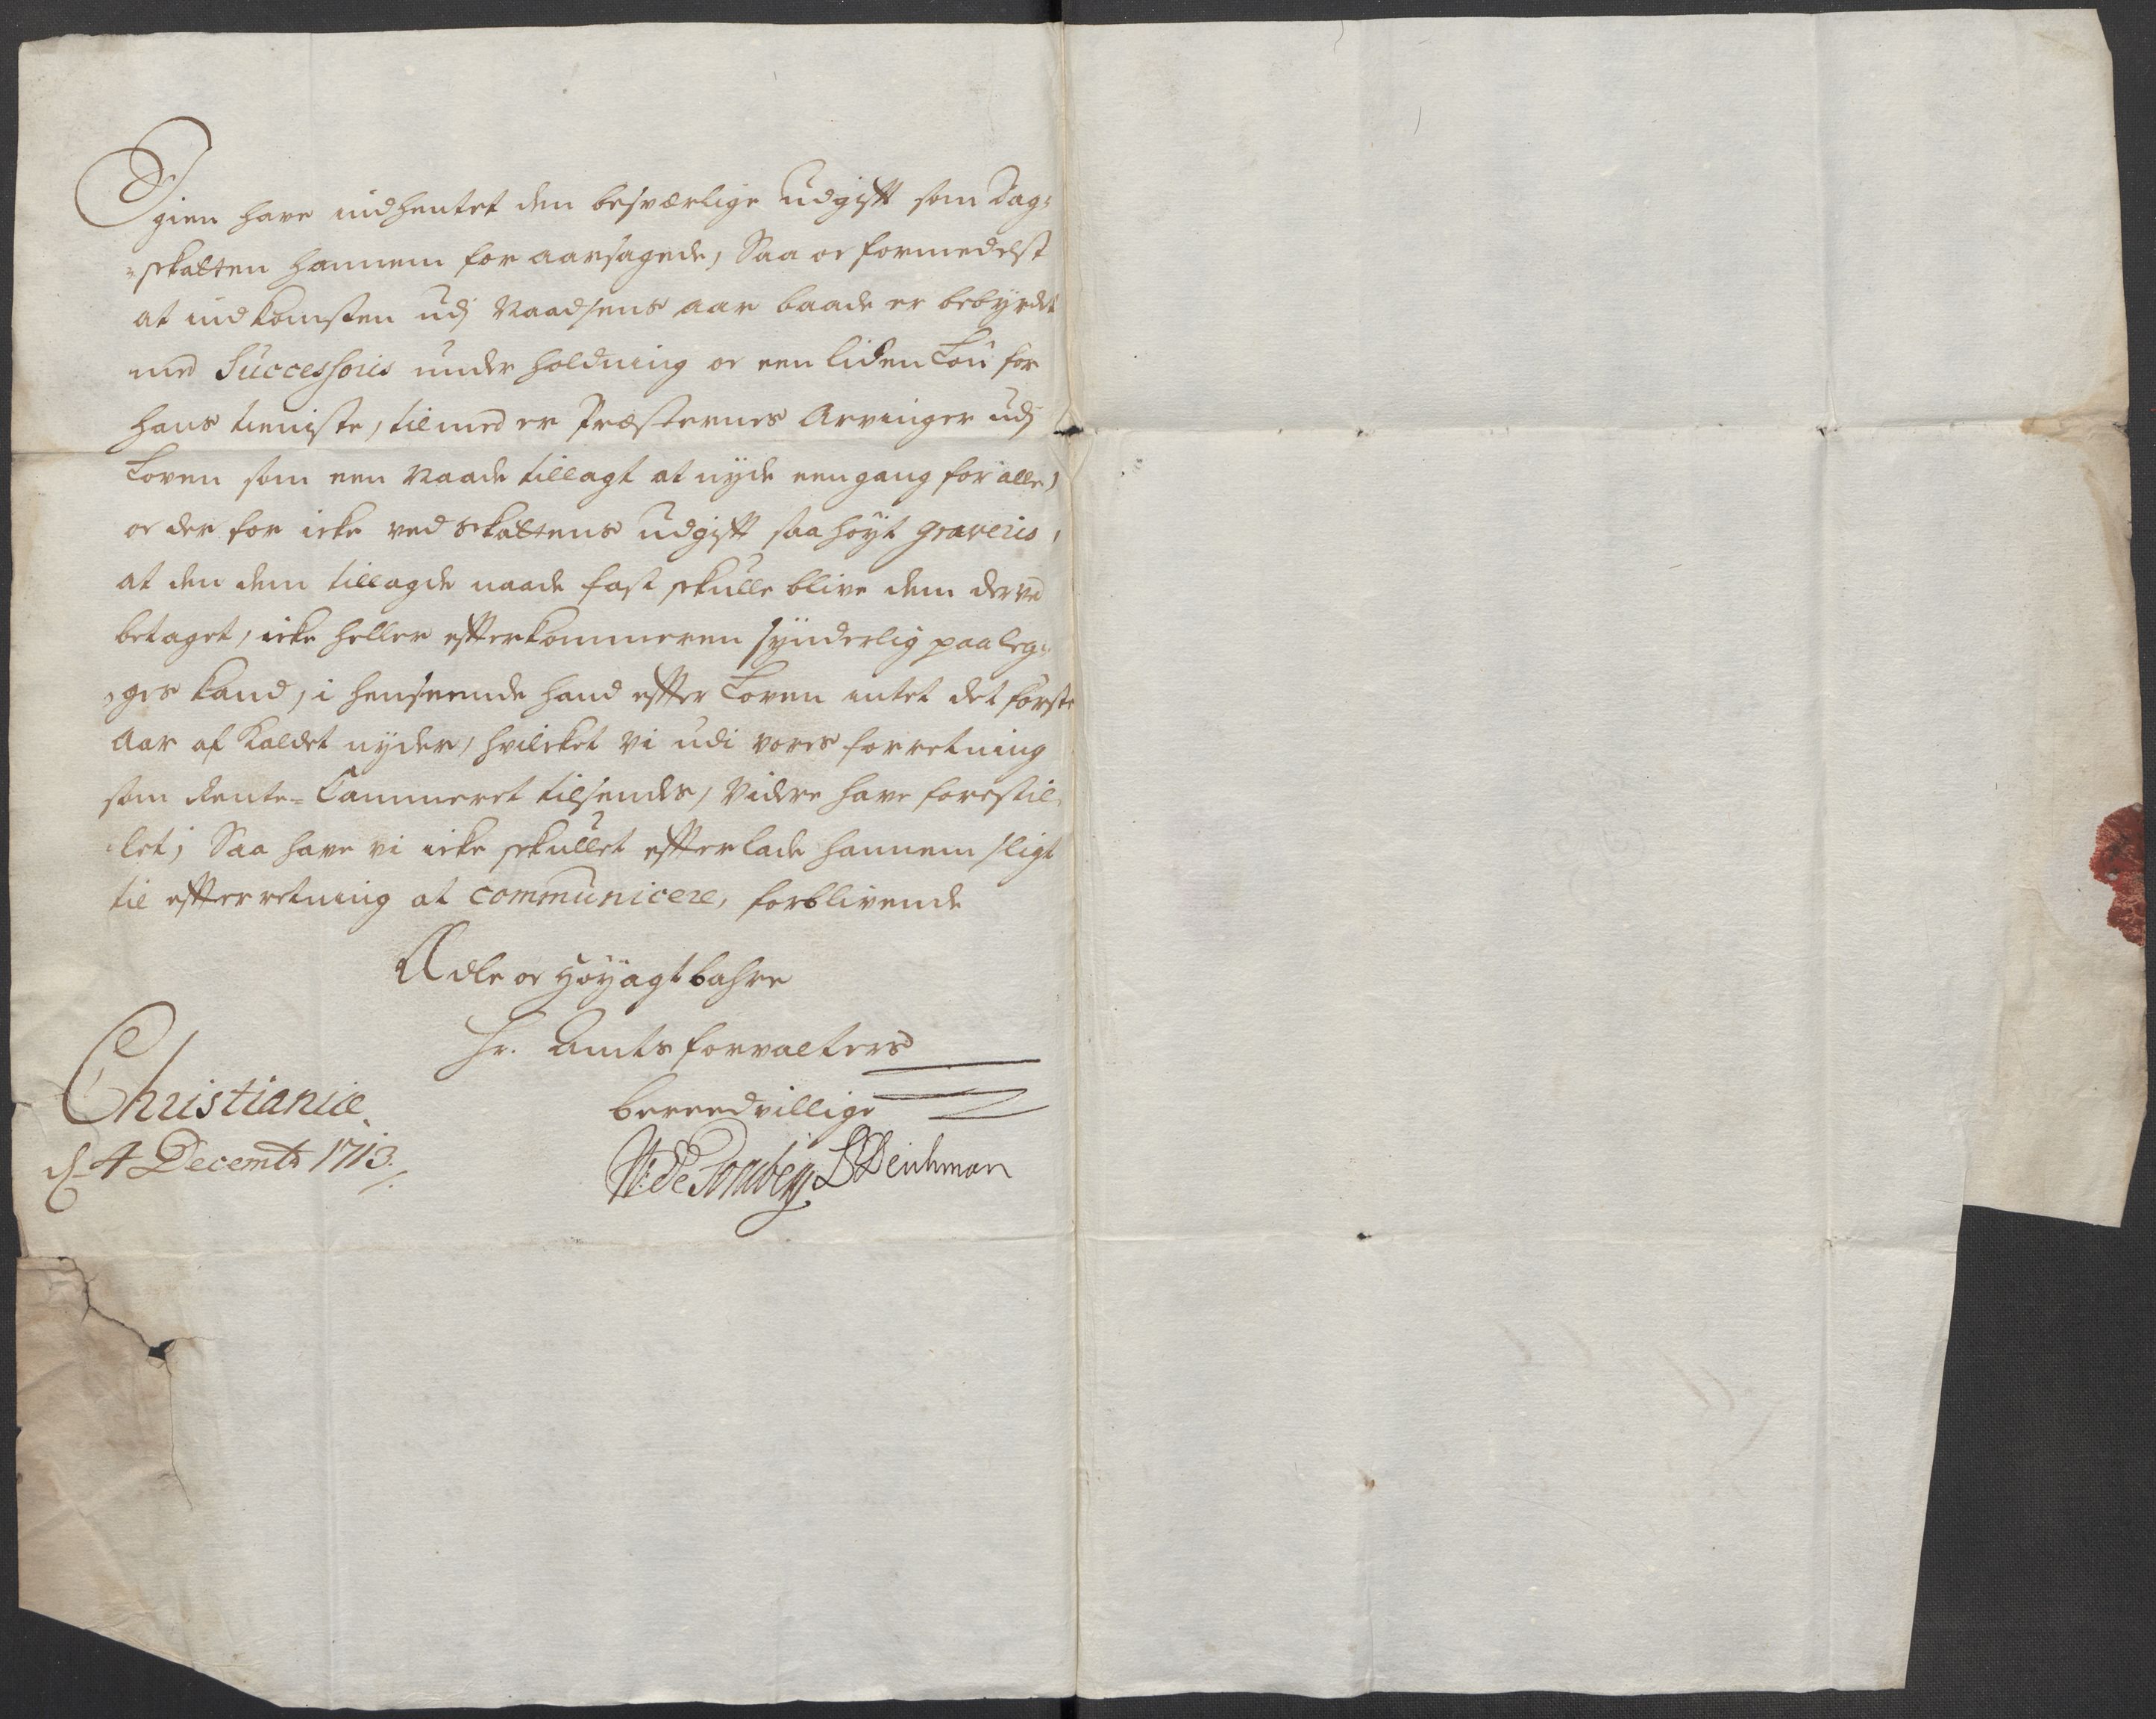 Igien have indhentet den besværlige udgift som Dag-
-skatten hannem foraarsagede, Saa oc formedelst
at indkomsten udj Naadsens aar baade er bebyrdet
med Successoris underholdning oc een liden Løn for
hans tieniste, tilmed er Præsternes Arvinger udj
Loven som een Naade tillagt at nyde eengang for alle,
oc der for icke ved Skattens udgift saa høyt graveris,
at den dem tillagde naade fast skulle blive dem derved
betaget, icke heller efterkommeren synderlig paaleg-
-ges kand, i henseende hand efter Loven intet det første
Aar af Kaldet nyder, hvilcket vi udi vores forretning
som Rente-Cammeret tilsendes, Videre have forestil-
-let; Saa have vi icke skullet efterlade hannem sligt
til efterretning at communicere, forblivende
Ædle oc Høyagtbahre
Hr. Amtsforvalters
bereedvillige
Christianiæ
d. 4 Decembr 1713.
W: de Tonsberg BDeichman